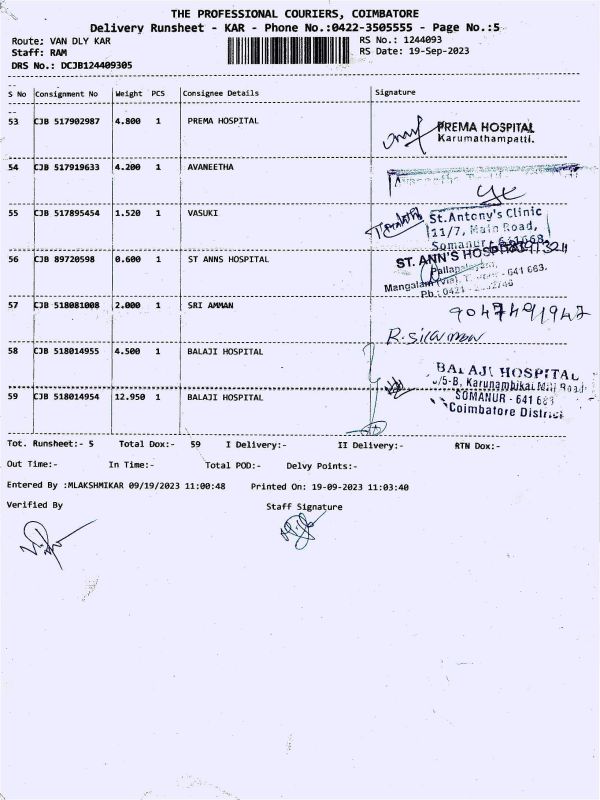 THE PROFESSIONAL COURIERS, COIMBATORE
Delivery Runsheet - KAR - Phone No.:0422-3505555 - Page No.:5
Route: VAN DLY KAR RS No.: 1244093
Staff: RAM RS Date: 19-Sep-2023
DRS No.: DCJB124409305
S No Consignment No Weight PCS Consignee Details Signature
53 CJB 517902987 4.800 1 PREMA HOSPITAL
PREMA HOSPITAL
Karumathampatti.
54 CJB 517919633 4.200 1 AVANEETHA
55 CJB 517895454 1.520 1 VASUKI
St.Antony's Clinic
11/7, Main Road,
Somanur - 641668.
56 CJB 89720598 0.600 1 ST ANNS HOSPITAL
ST. ANN'S HOSPITAL
Pallapalayam,
Mangalam (Via), - 641 663.
Ph : 0421 -
57 CJB 518081008 2.000 1 SRI AMMAN
9047491947
58 CJB 518014955 4.500 1 BALAJI HOSPITAL
BALAJI HOSPITAL
/5-B, Karunambikai Mill Road
59 CJB 518014954 12.950 1 BALAJI HOSPITAL
SOMANUR - 641 668
Coimbatore District
Tot. Runsheet:- 5 Total Dox:- 59 I Delivery:- II Delivery:- RTN Dox:-
Out Time:- In Time:- Total POD:- Delvy Points:-
Entered By :MLAKSHMIKAR 09/19/2023 11:00:48 Printed On: 19-09-2023 11:03:40
Verified By Staff Signature